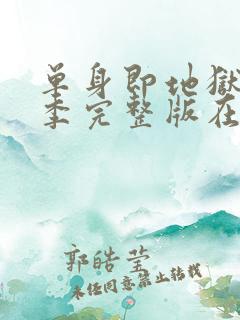 单身即地狱
季完整版在
郭皓莹
未经同意禁止转载